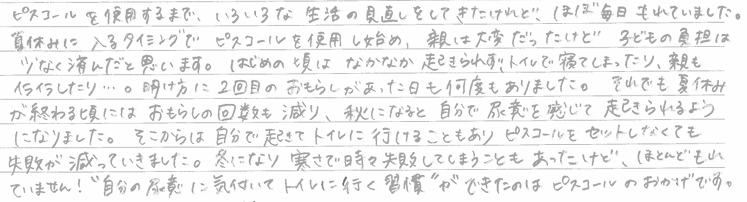 ピスコールを使用するまで、いろいろな生活の見直しをしてきたけれど、ほぼ毎日もれていました。
夏休みに入るタイミングでピスコールを使用し始め、親は大変だったけど子どもの負担は
少なく済んだと思います。はじめの頃はなかなか起きられず、トイレで寝てしまったり、親も
イライラしたり…。明け方に2回目のおもらしがあった日も何度もありました。それでも夏休み
が終わる頃にはおもらしの回数も減り、秋になると自分で尿意を感じて起きられるよう
になりました。そこからは自分で起きてトイレに行けることもありピスコールをセットしなくても
失敗が減っていきました。冬になり寒さで時々失敗してしまうこともあったけど、ほとんどもれ
ていません！"自分の尿意に気付いてトイレに行く習慣"ができたのはピスコールのおかげです。